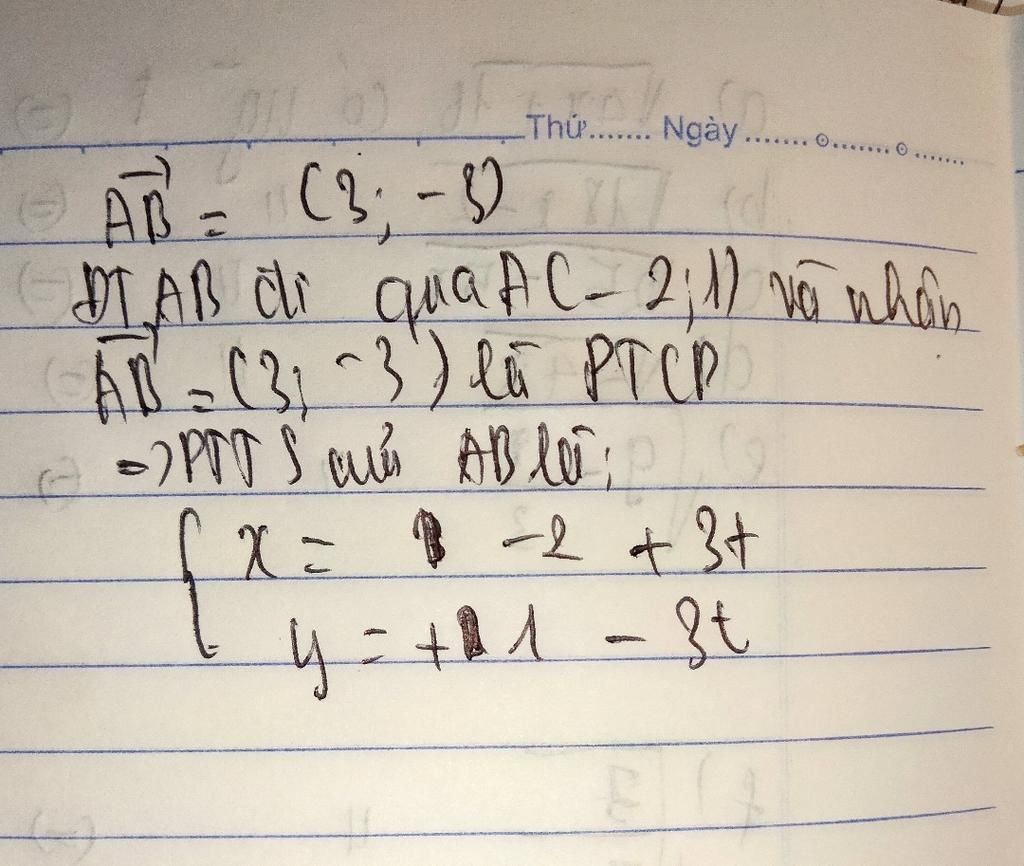 Thứ....... Ngày...............
AB = (3; -3)
ĐT AB đi qua A(-2;1) và nhân
AB = (3; -3) là PTCP
=> PTTS của AB là:
x = -2 + 3t
y = +1 - 3t